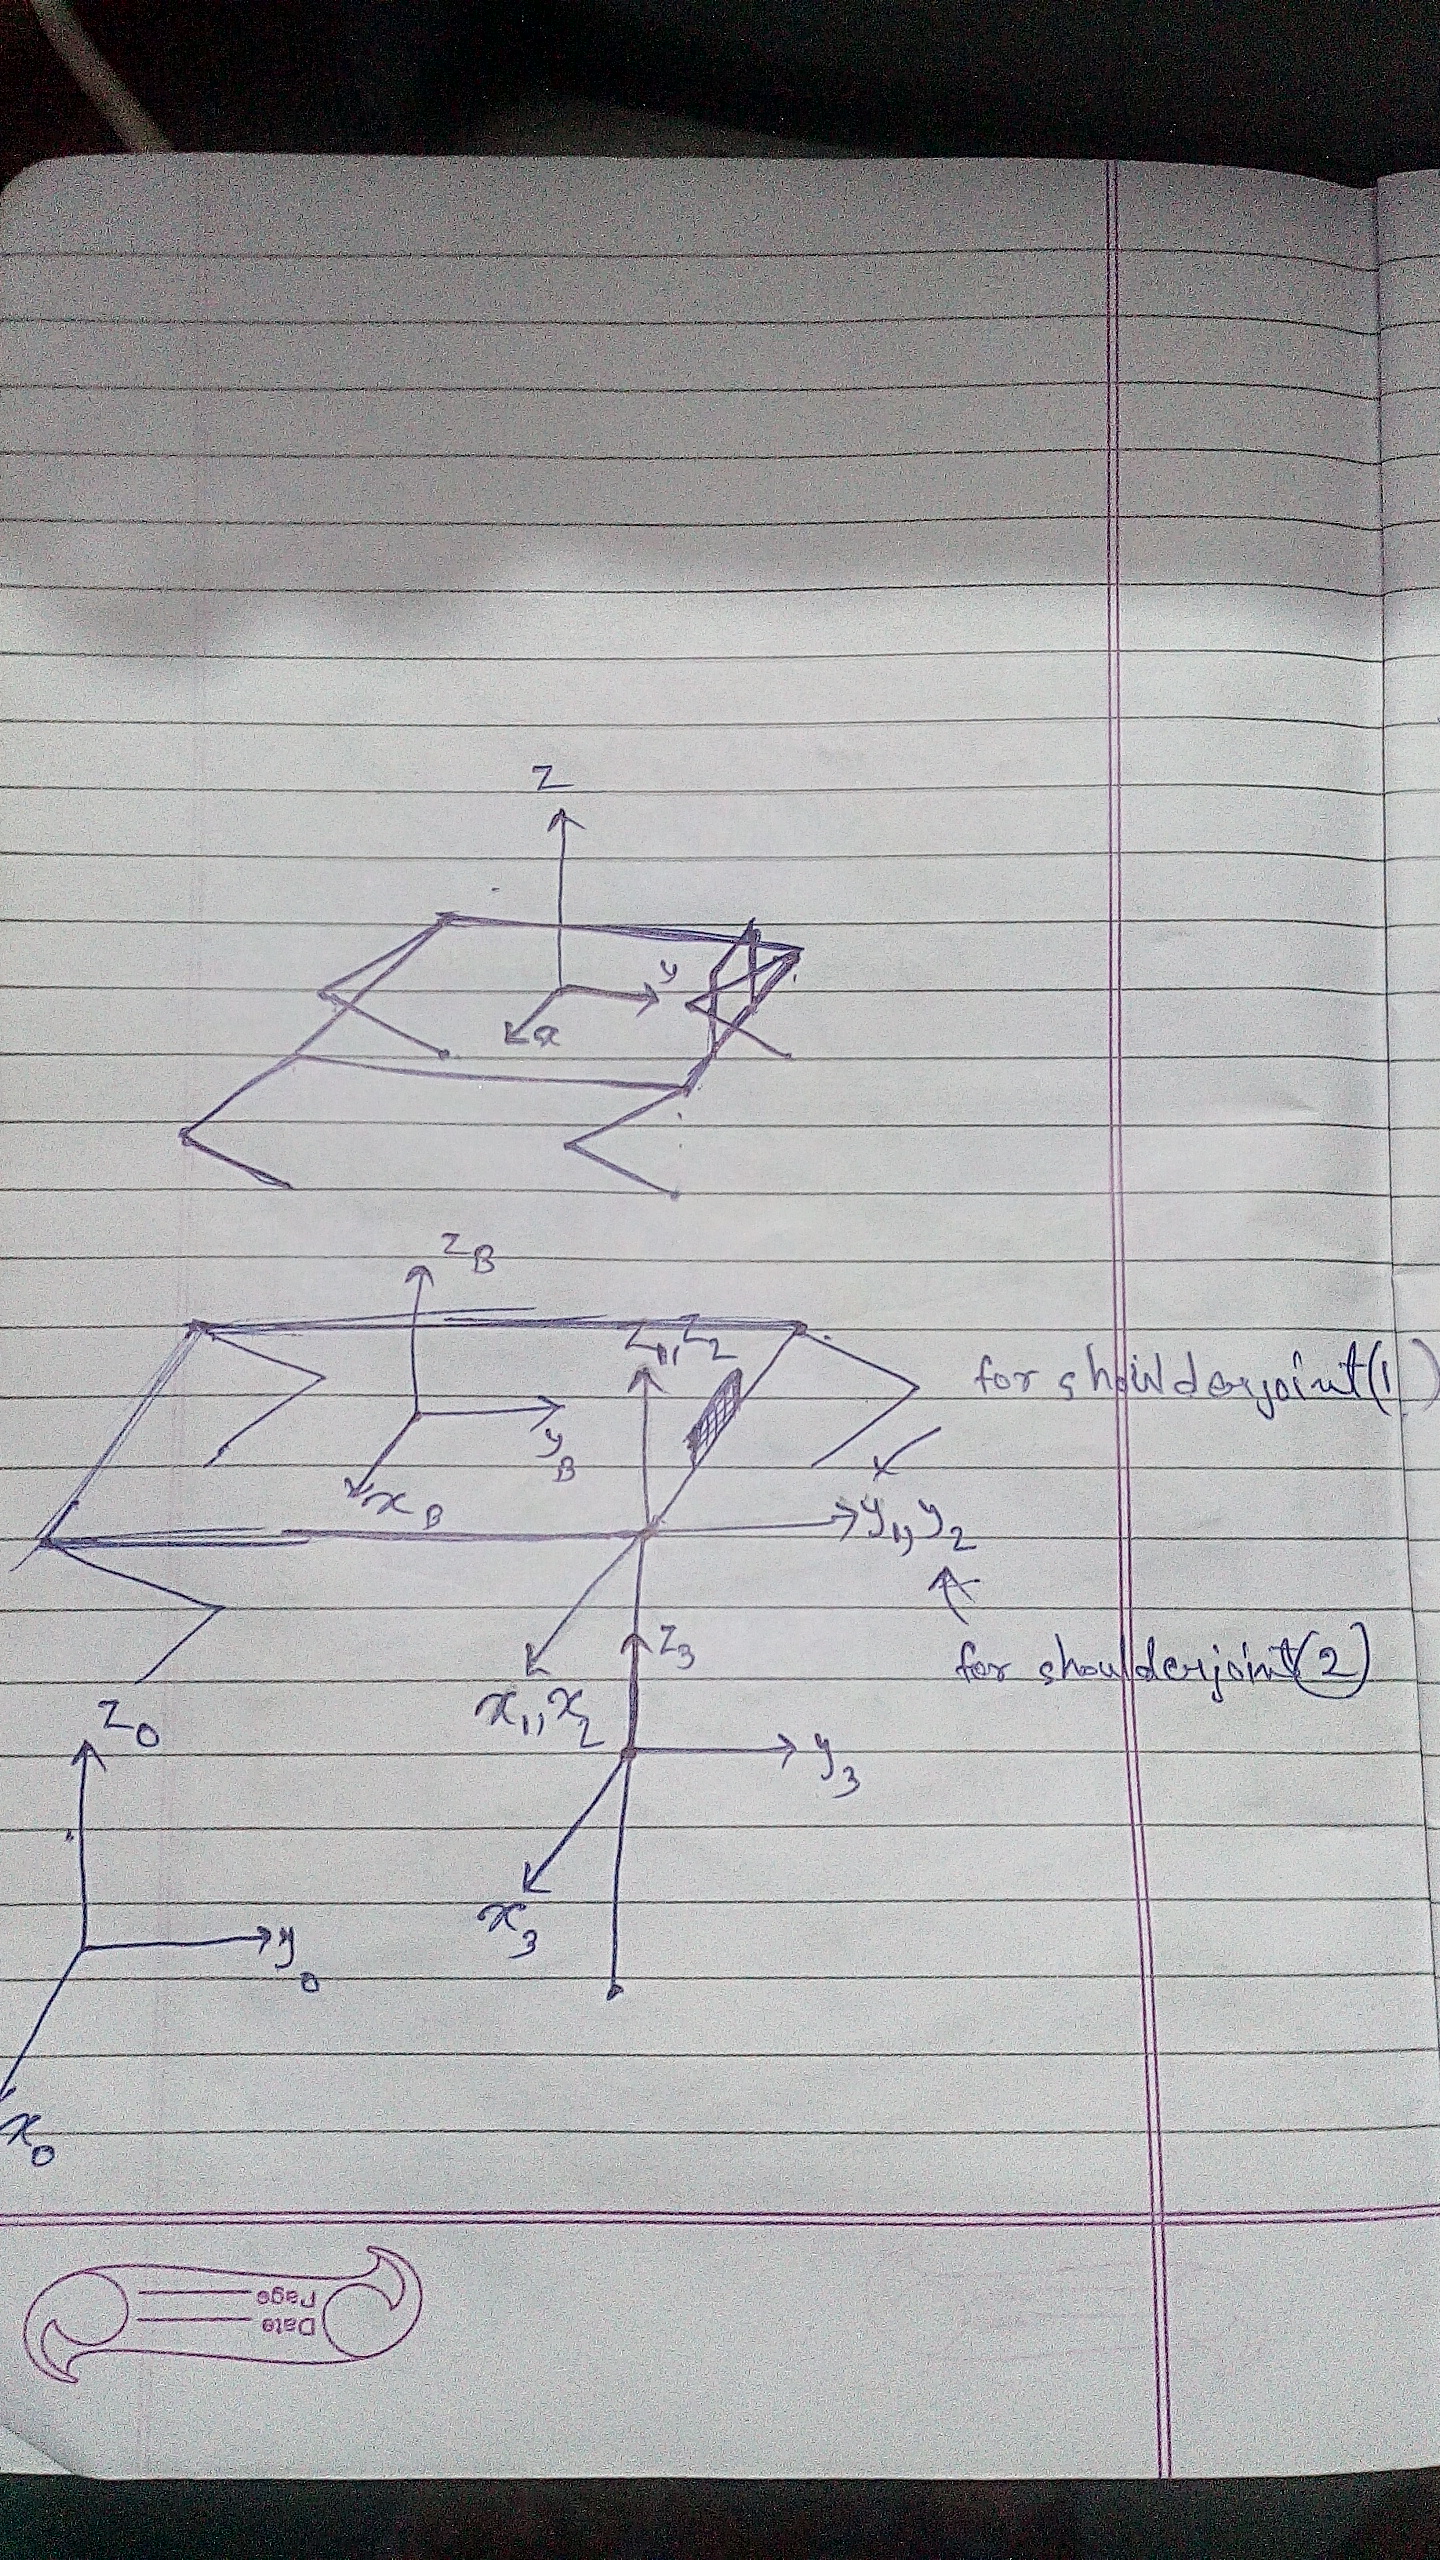 Z
y
x
Z_B
Z_1, Z_2
for shoulderjoint(1)
y_B
x_B
y_1, y_2
for shoulderjoint(2)
Z_3
x_1, x_2
Z_0
y_3
x_3
y_0
x_0
Page
Date